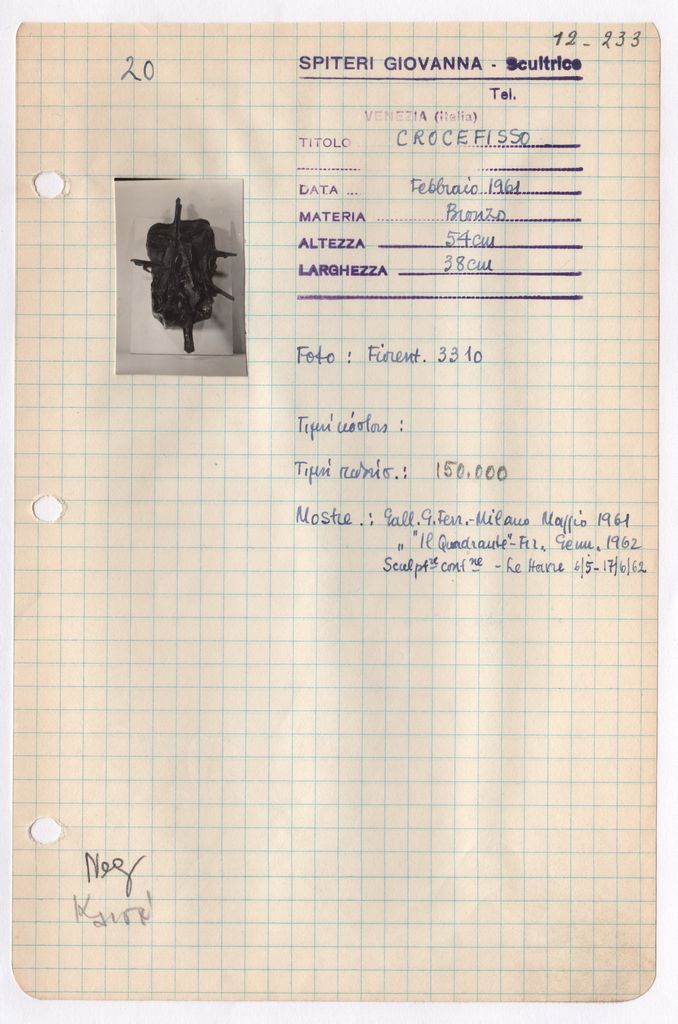 12-233
20
SPITERI GIOVANNA - Scultrice
Tel.
VENEZIA (Italia)
TITOLO CROCEFISSO
DATA ... Febbraio 1961
MATERIA Bronzo
ALTEZZA 54cm
LARGHEZZA 38cm
Foto : Fiorent. 3310
Τιμή κόστους :
Τιμή :  150.000
Mostre .: Gall. G. Ferr.-Milano Maggio 1961
" "Il Quadrante"-Fir. Genn. 1962
Sculptre contne - Le Havre 6/5-17/6/62
Neg